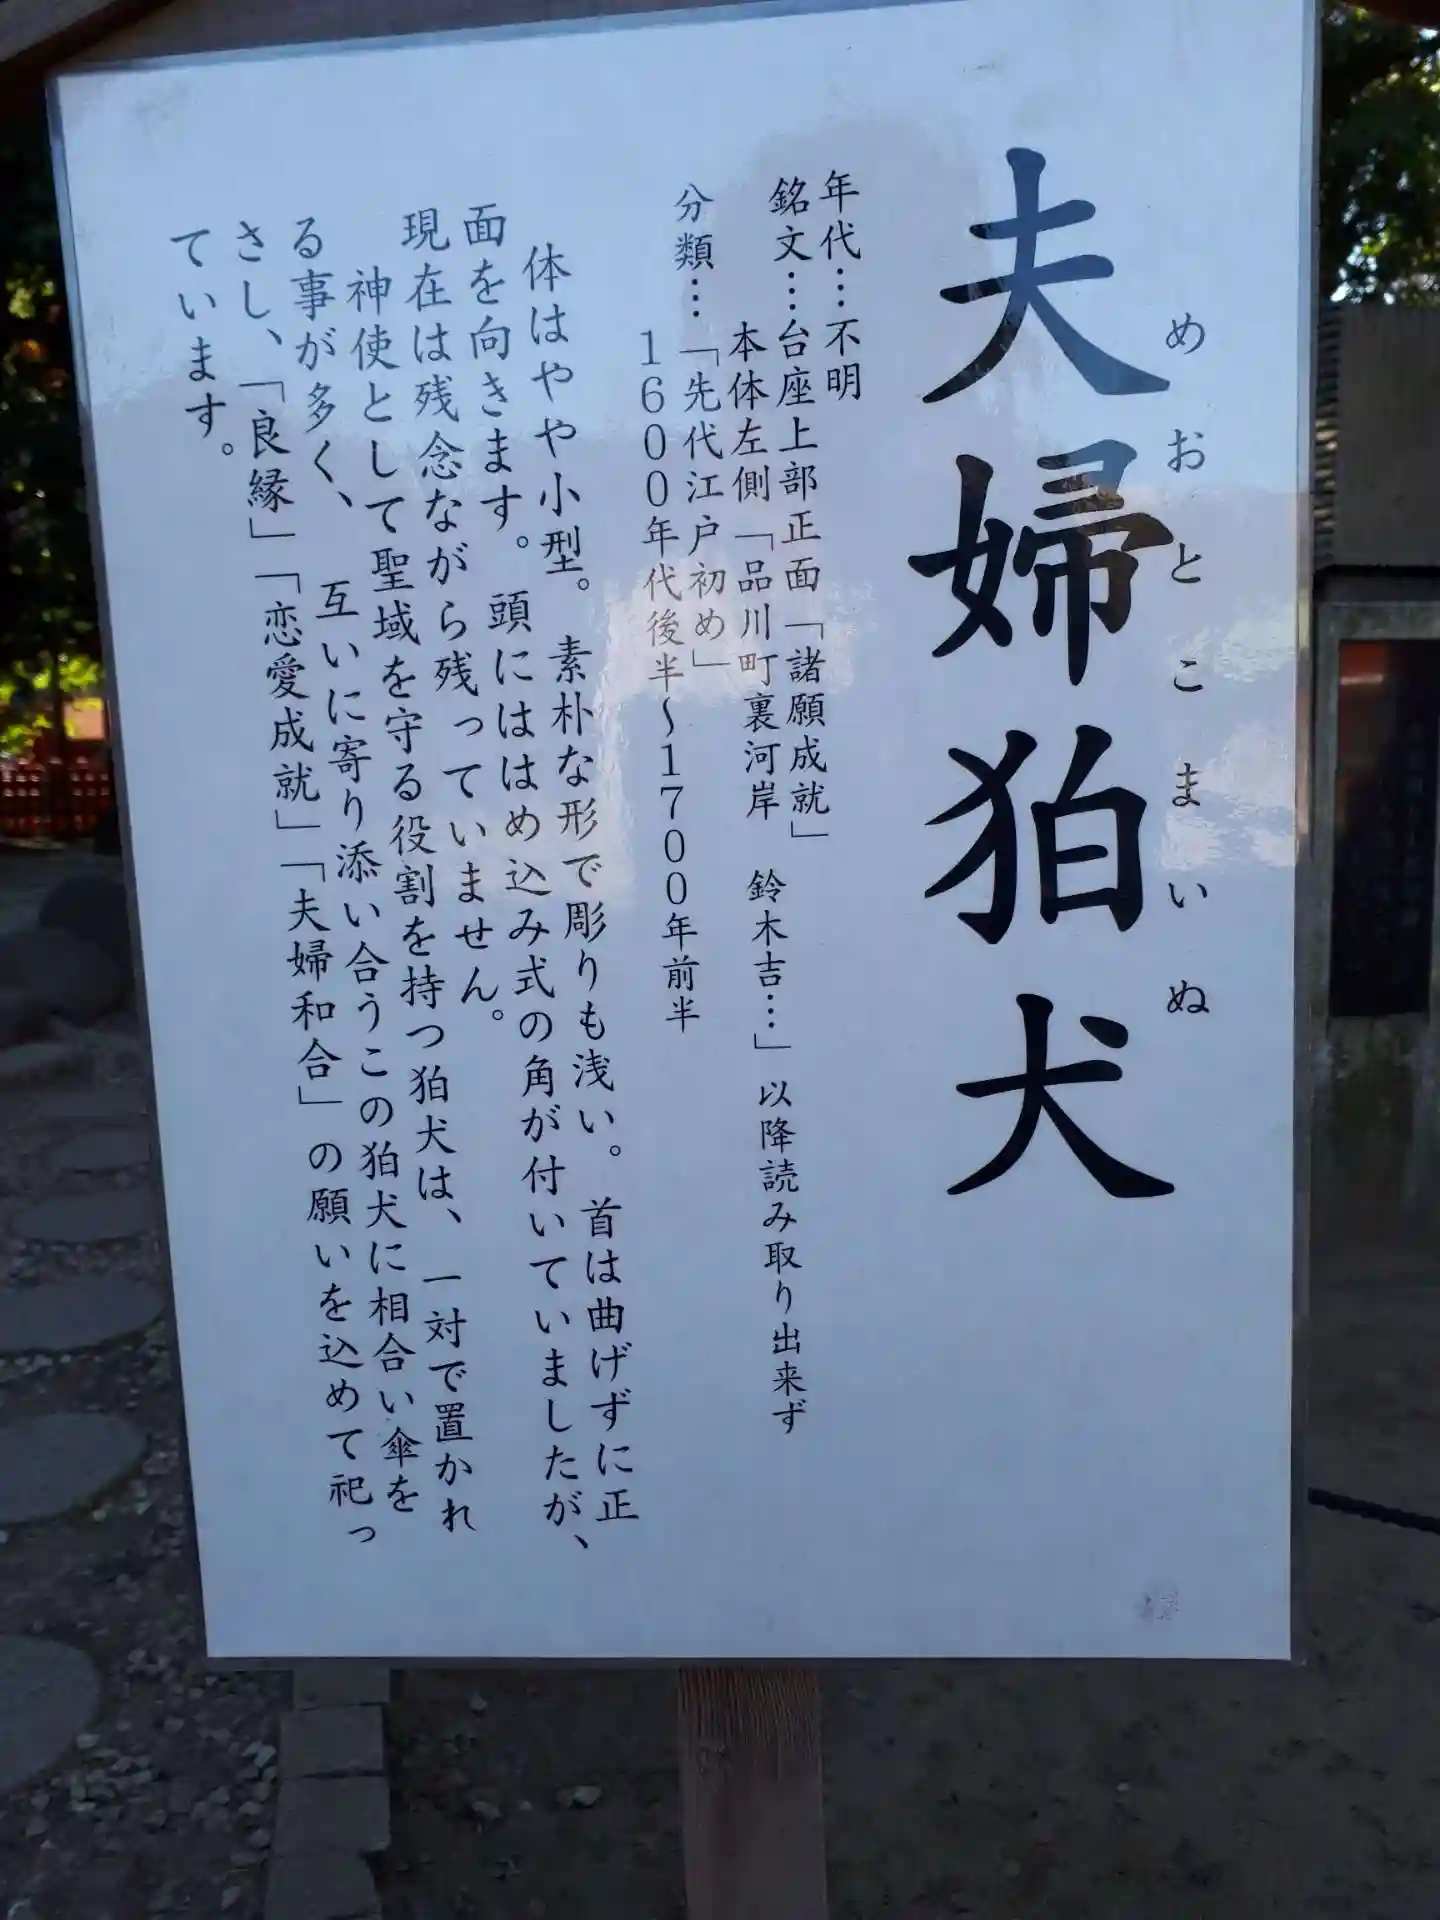 夫婦狛犬
めおとこまいぬ
年代…不明
銘文…台座上部正面「諸願成就」
本体左側「品川町裏河岸 鈴木吉…」以降読み取り出来ず
分類…「先代江戸初め」
1600年代後半～1700年前半
体はやや小型。素朴な形で彫りも浅い。首は曲げずに正
面を向きます。頭にははめ込み式の角が付いていましたが、
現在は残念ながら残っていません。
神使として聖域を守る役割を持つ狛犬は、一対で置かれ
る事が多く、互いに寄り添い合うこの狛犬に相合い傘を
さし、「良縁」「恋愛成就」「夫婦和合」の願いを込めて祀っ
ています。